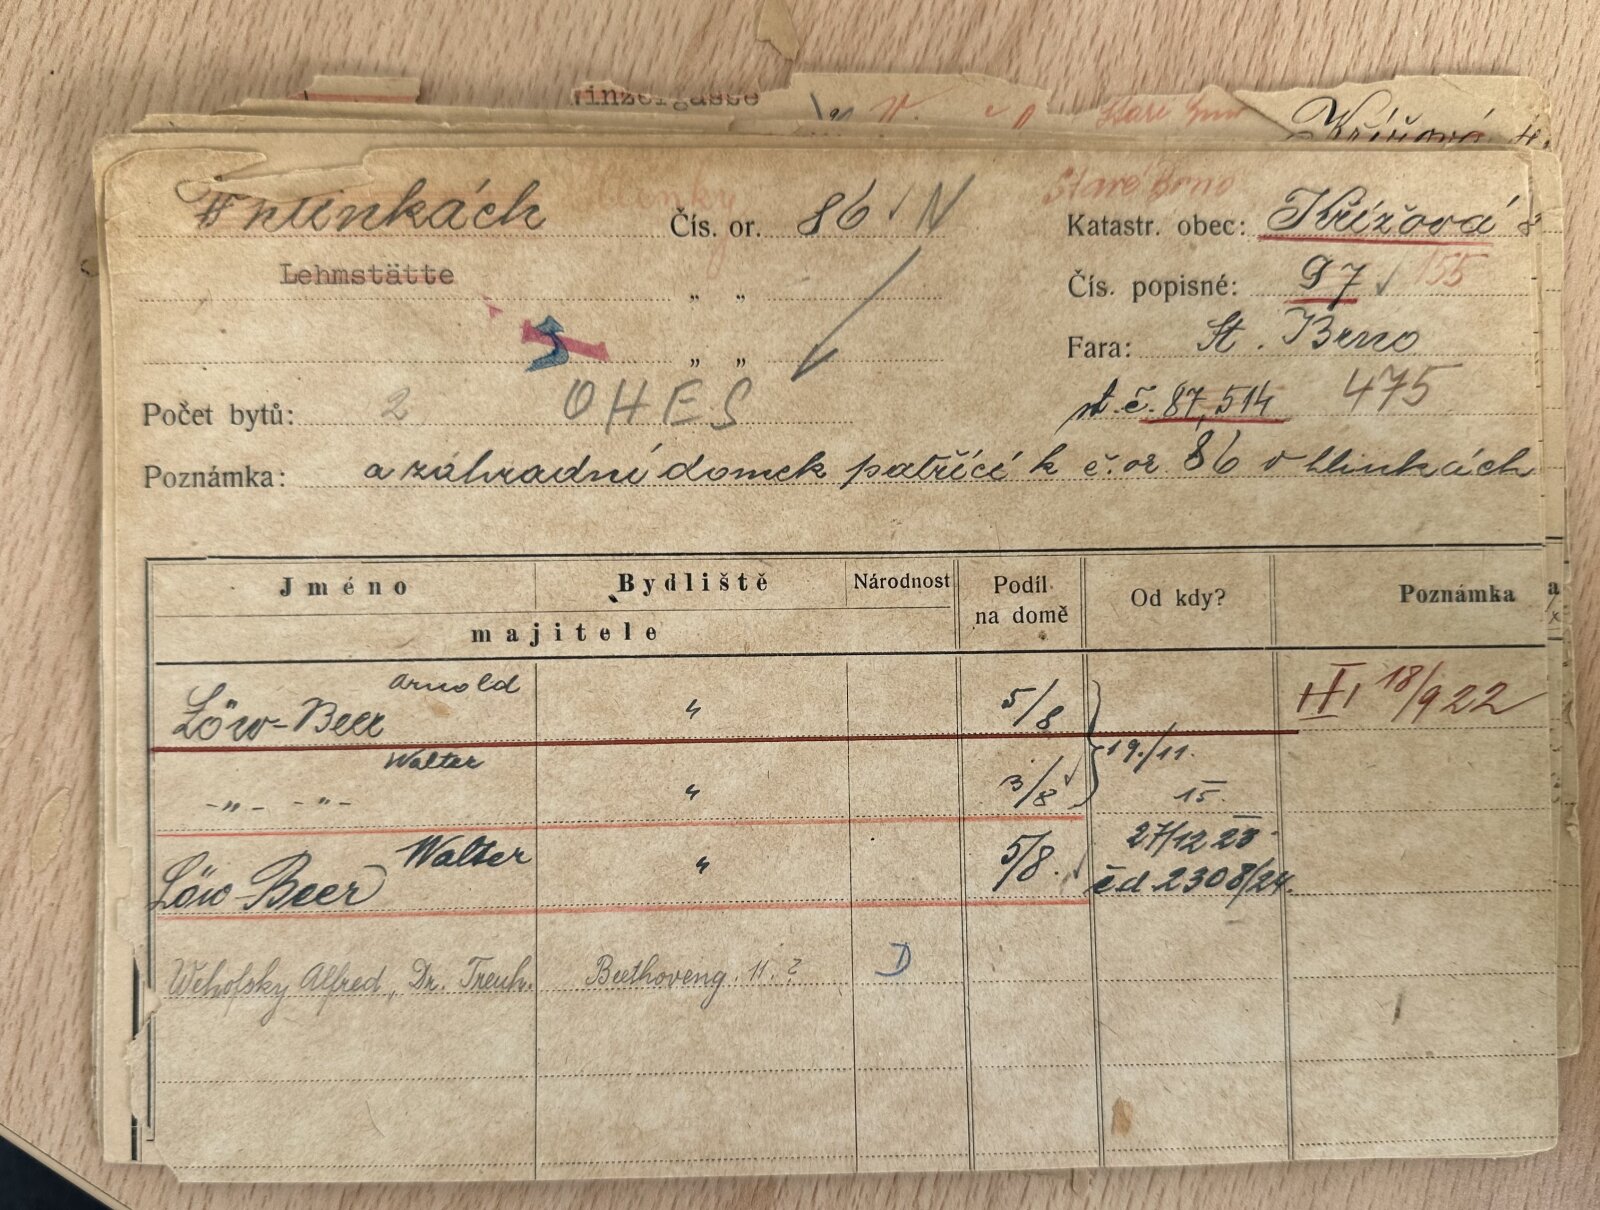 inzergasse
Staré
Křížová
V hlinkách Hlinky Čís. or. 86 N Staré Brno Katastr. obec: Křížová 8
Lehmstätte „ „ Čís. popisné: 97 155
„ „ Fara: St. Brno
Počet bytů: 2 OHES st. č. 87, 514 475
Poznámka: a záhradní domek patřící k č. or. 86 v hlinkách
Jméno Bydliště Národnost Podíl na domě Od kdy? Poznámka
majitele
Löw-Beer Arnold " 5/8 19./11. 15. III 18/9 22
-„- -„- Walter " 3/8
Löw Beer Walter " 5/8. 27/12 23 č.d. 2308/24.
Wehofsky Alfred, Dr. Treuh. Beethoveng. 11. ? D